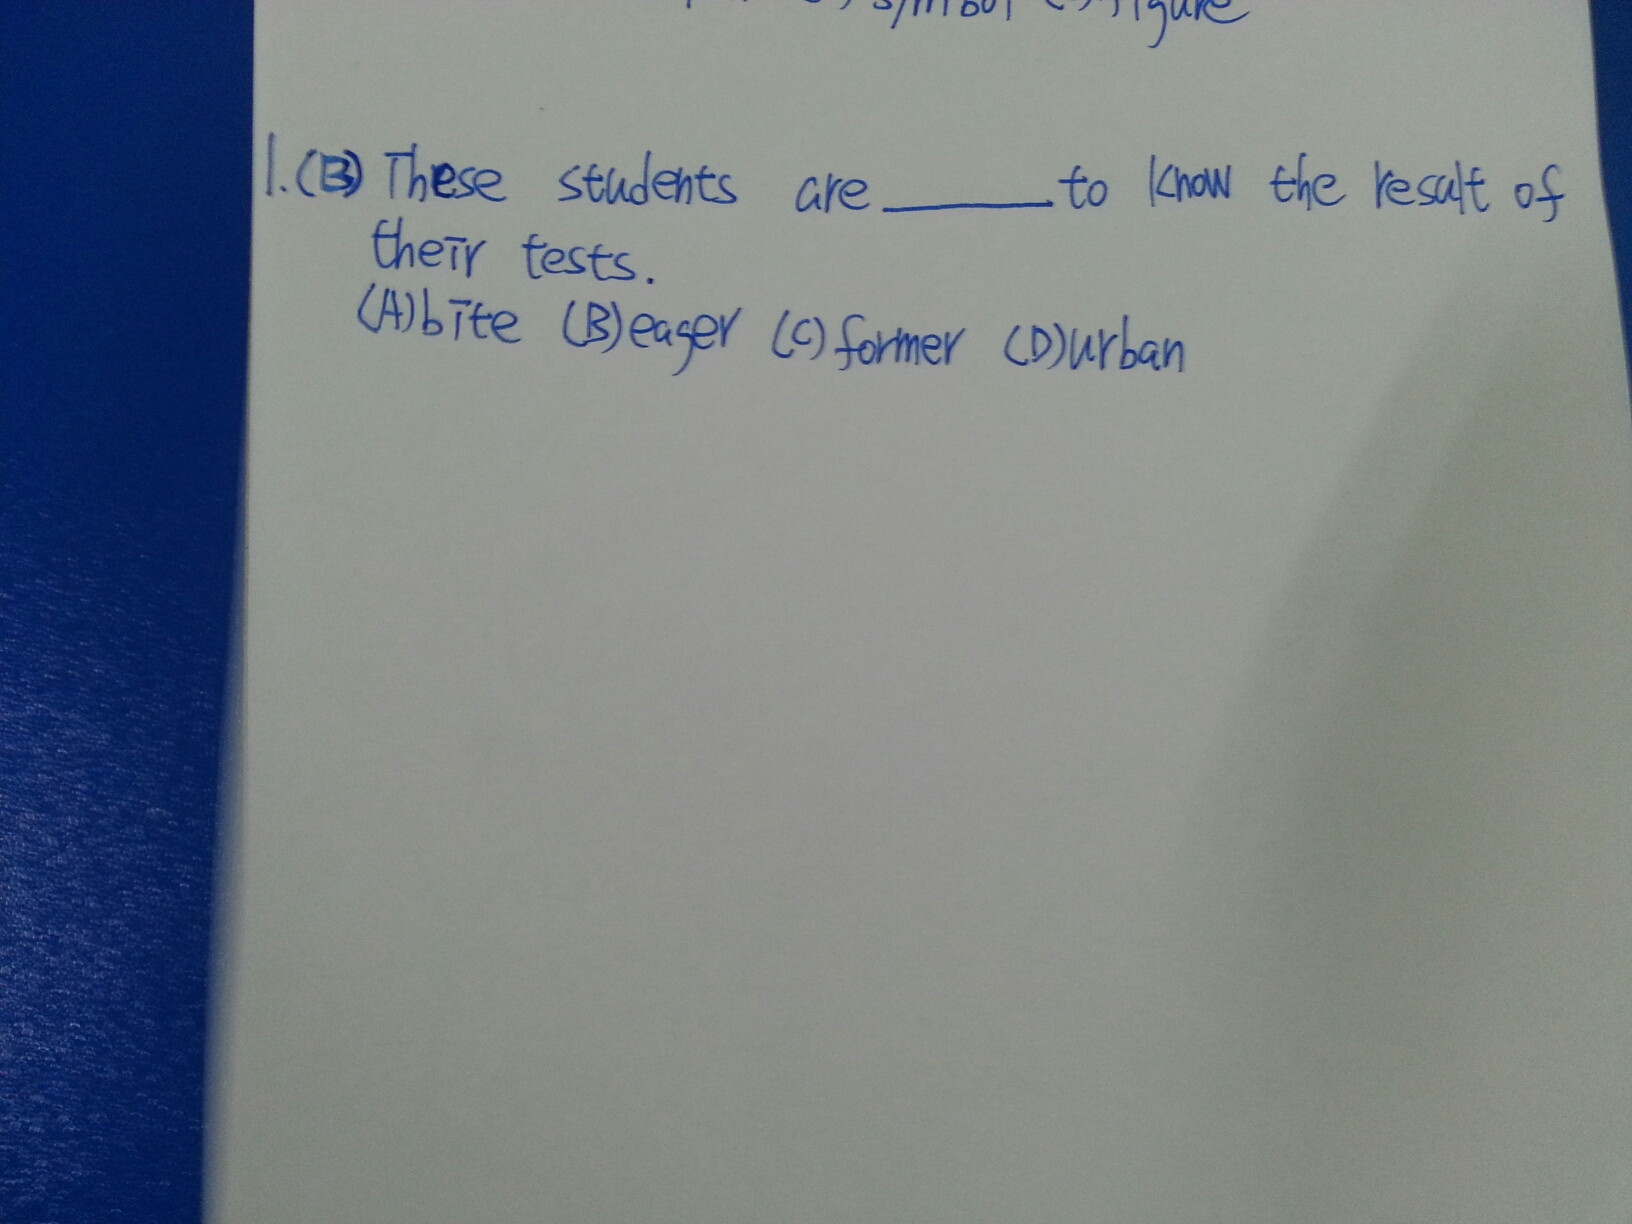 symbol figure
1.(B) These students are ______ to know the result of
their tests.
(A)bite (B)eager (C)former (D)urban